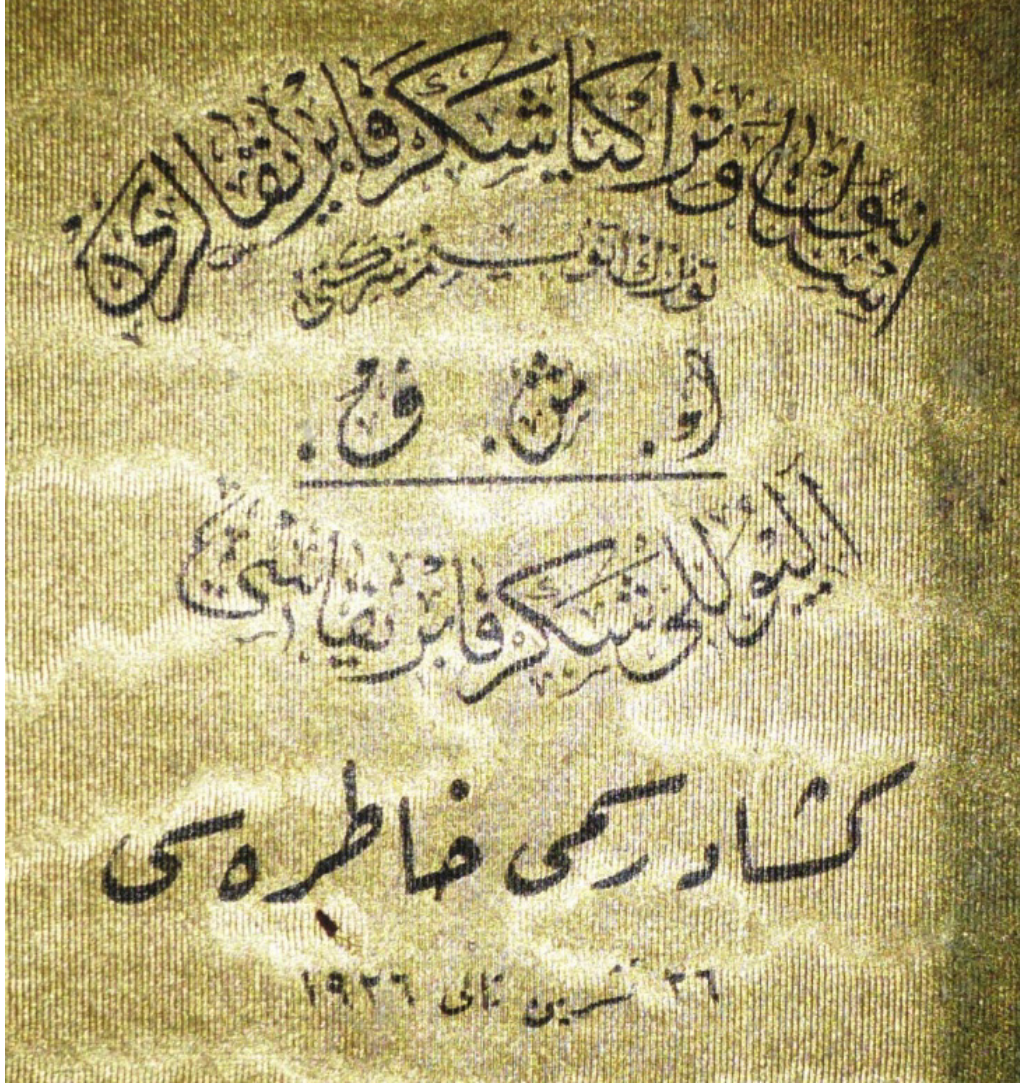 استانبول و تراكيا شكر فابريقه‌لرى
تورك آنونيم شركتى
ا. ش. ف.
آلپوللى شكر فابريقه‌سى
كشاد رسمى خاطره‌سى
٢٦ تشرين ثانى ١٩٢٦